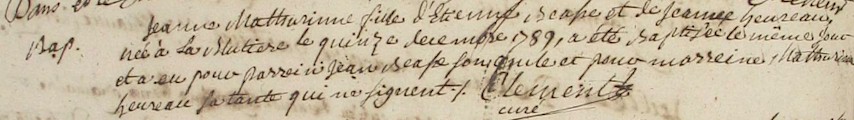 Jeanne Mathurinne fille d'Etienne Beasse et de Jeanne heureau,
Bap. née à La Blutiere le quinze decembre 1789, a été Baptisée le même jour
et a eu pour parrein Jean Beasse son oncle et pour marreine Mathurine
heureau sa tante qui ne signent./. Clement
curé